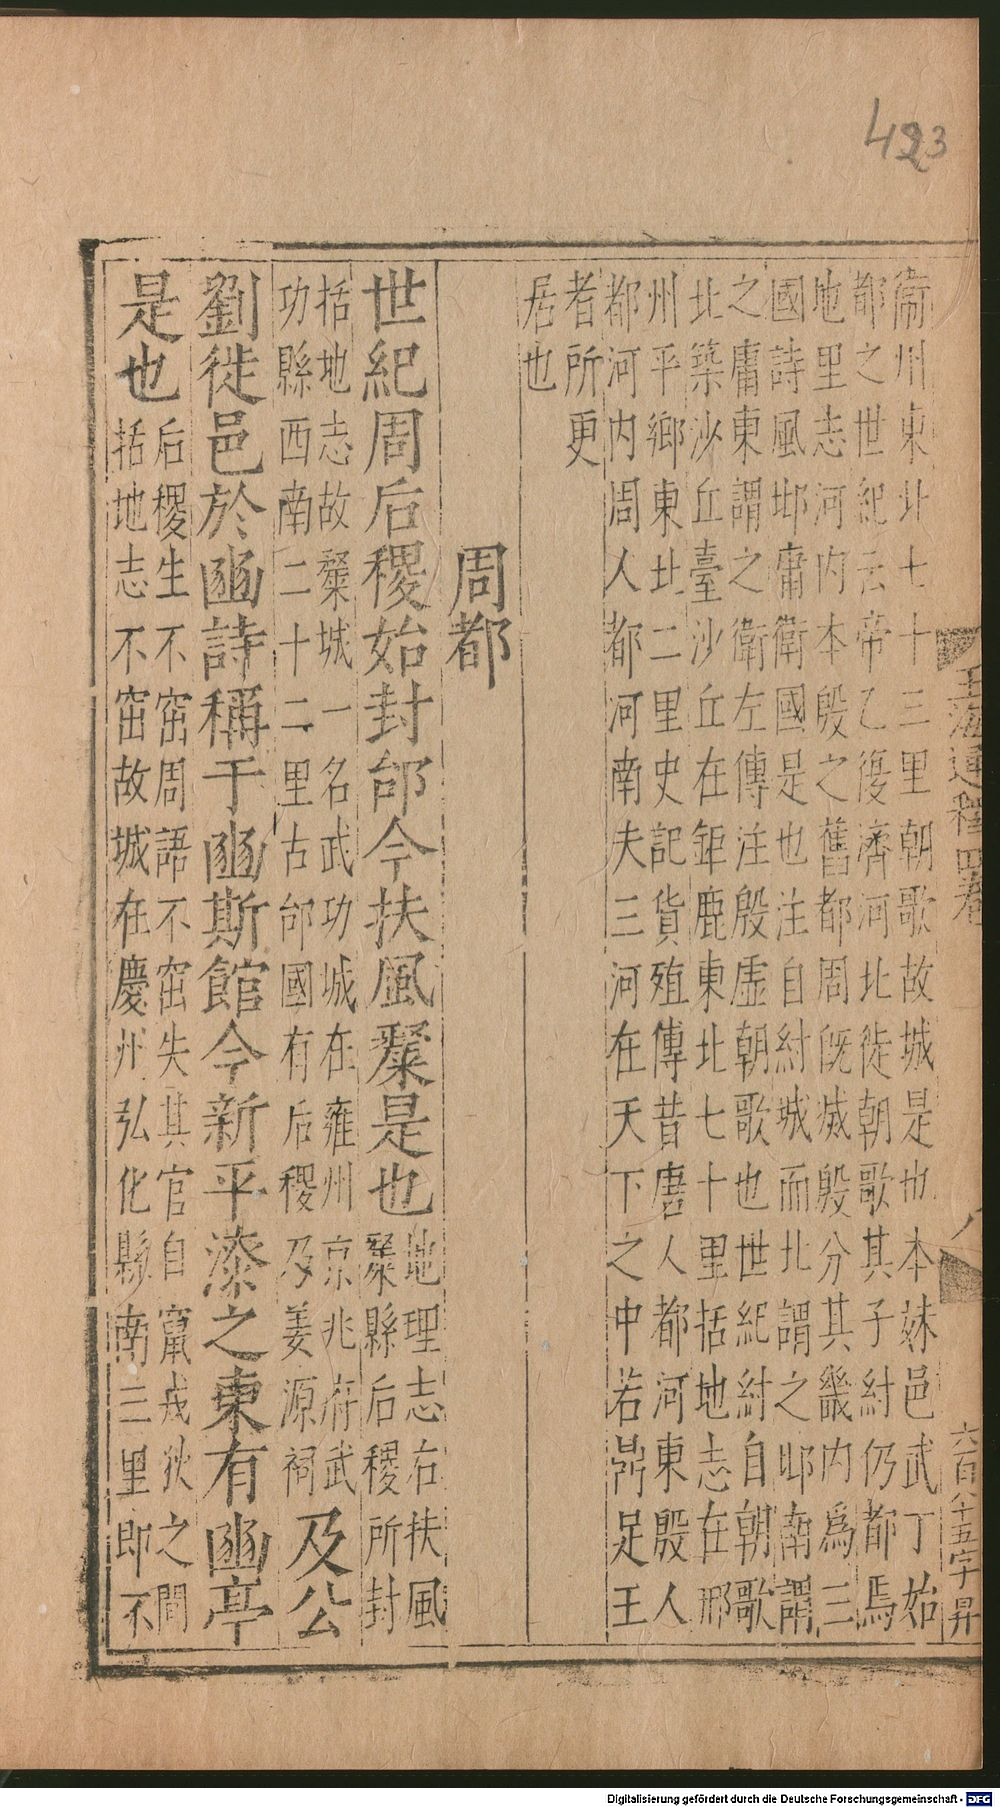 423
衞州東北七十三里朝歌故城是也本妹邑武丁始
都之世紀云帝乙復濟河北徙朝歌其子紂仍都焉
地里志河內本殷之舊都周旣滅殷分其畿內爲三
國詩風邶庸衞國是也注自紂城而北謂之邶南謂
之庸東謂之衛左傳注殷虛朝歌也世紀紂自朝歌
北築沙丘臺沙丘在鉅鹿東北七十里括地志在邢
州平鄉東北二里史記貨殖傳昔唐人都河東殷人
都河內周人都河南夫三河在天下之中若鼎足王
者所更
居也
周都
世紀周后稷始封邰今扶風斄是也地理志右扶風
斄縣后稷所封
括地志故斄城一名武功城在雍州京兆府武
功縣西南二十二里古邰國有后稷及姜源祠及公
劉徙邑於豳詩稱于豳斯館今新平漆之東有豳亭
是也后稷生不窋周語不窋失其官自竄戎狄之間
括地志不窋故城在慶州弘化縣南三里卽不
玉海通釋四卷
八
六百八十五字昇
Digitalisierung gefördert durch die Deutsche Forschungsgemeinschaft - DFG